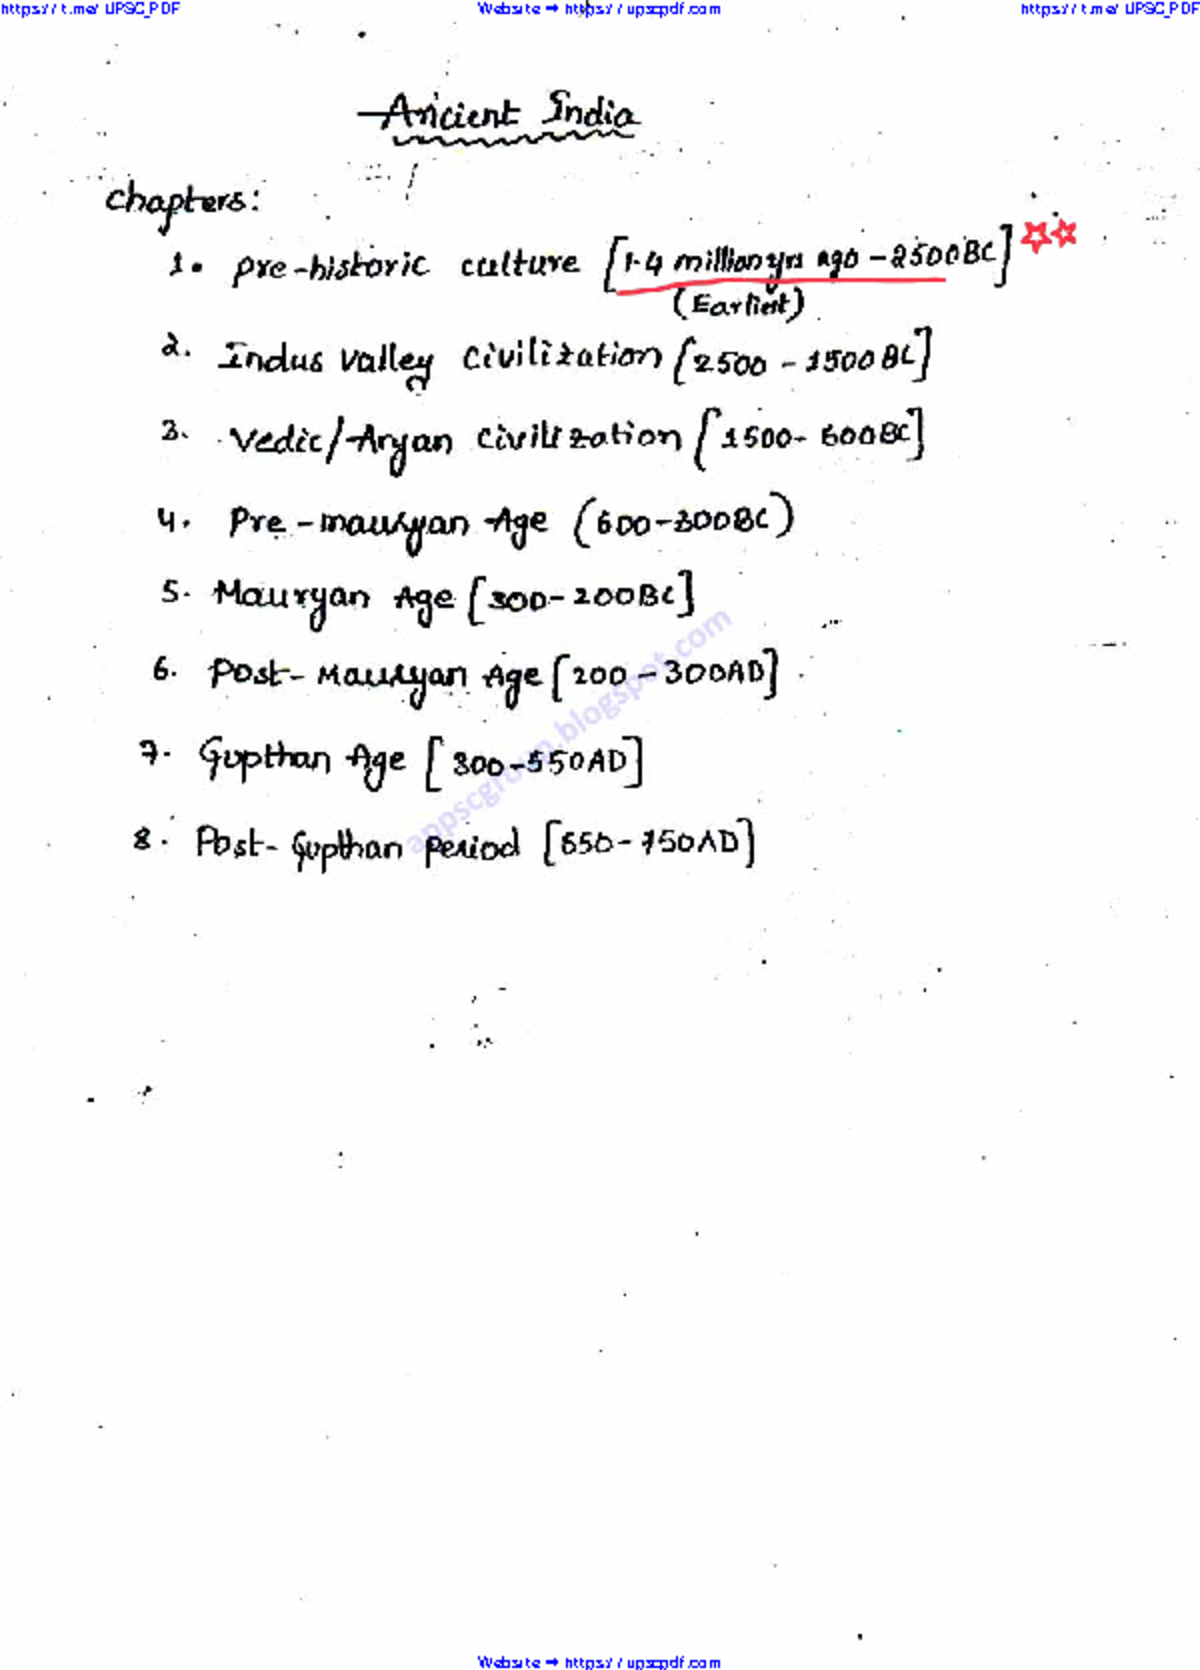 https://t.me/UPSC_PDF Website ➞ https://upscpdf.com https://t.me/UPSC_PDF
Ancient India
Chapters:
1. Pre-historic culture [1.4 million yrs ago - 2500BC] ☆☆
(Earliest)
2. Indus Valley Civilization [2500 - 1500 BC]
3. Vedic/Aryan Civilization [1500 - 600BC]
4. Pre-mauryan Age (600-300BC)
5. Mauryan Age [300-200BC]
6. Post-Mauryan Age [200 - 300AD]
7. Gupthan Age [300-550AD]
8. Post-Gupthan Period [550-750AD]
appscgroup.blogspot.com
Website ➞ https://upscpdf.com